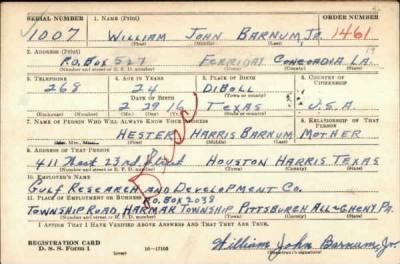 SERIAL NUMBER 1. NAME (Print) ORDER NUMBER
1007 WILLIAM JOHN BARNUM, JR. 1461
(First) (Middle) (Last)
2. ADDRESS (Print)
P.O. BOX 527 FERRIDAY CONCORDIA LA.
(Number and street or R. F. D. number) (Town) (County) (State)
3. TELEPHONE 4. AGE IN YEARS 5. PLACE OF BIRTH 6. COUNTRY OF CITIZENSHIP
268 24 DIBOLL
DATE OF BIRTH (Town or county)
2 29 16 TEXAS U.S.A.
(Mo.) (Day) (Yr.) (State or country)
7. NAME OF PERSON WHO WILL ALWAYS KNOW YOUR ADDRESS 8. RELATIONSHIP OF THAT PERSON
HESTER HARRIS BARNUM MOTHER
(Mr., Mrs., Miss) (First) (Middle) (Last)
9. ADDRESS OF THAT PERSON
411 23rd Street HOUSTON HARRIS TEXAS
(Number and street or R. F. D. number) (Town) (County) (State)
10. EMPLOYER'S NAME
GULF RESEARCH AND DEVELOPMENT CO.
11. PLACE OF EMPLOYMENT OR BUSINESS P.O. BOX 2038
TOWNSHIP ROAD, HARMAR TOWNSHIP PITTSBURGH ALLEGHENY PA.
(Number and street or R. F. D. number) (Town) (County) (State)
I AFFIRM THAT I HAVE VERIFIED ABOVE ANSWERS AND THAT THEY ARE TRUE.
REGISTRATION CARD
D. S. S. FORM 1 (over) 16—17105 William John Barnum, Jr.